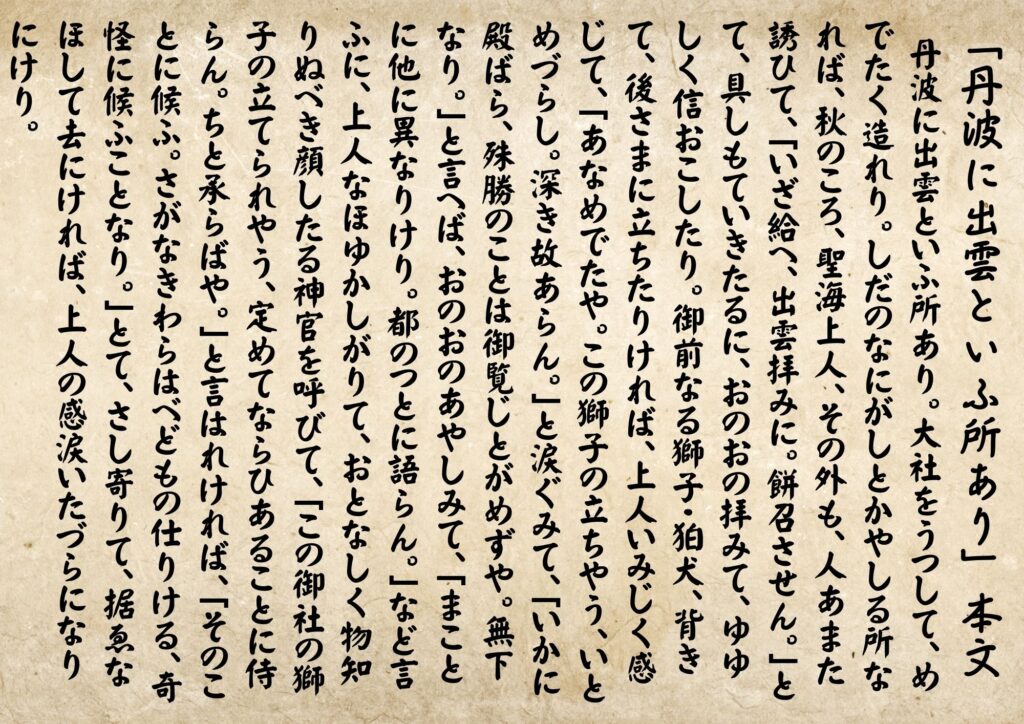 「丹波に出雲といふ所あり」 本文
丹波に出雲といふ所あり。大社をうつして、め
でたく造れり。しだのなにがしとかやしる所な
れば、秋のころ、聖海上人、その外も、人あまた
誘ひて、「いざ給へ、出雲拝みに。餅召させん。」と
て、具しもていきたるに、おのおの拝みて、ゆゆ
しく信おこしたり。御前なる獅子・狛犬、背き
て、後さまに立ちたりければ、上人いみじく感
じて、「あなめでたや。この獅子の立ちやう、いと
めづらし。深き故あらん。」と涙ぐみて、「いかに
殿ばら、殊勝のことは御覧じとがめずや。無下
なり。」と言へば、おのおのあやしみて、「まこと
に他に異なりけり。都のつとに語らん。」など言
ふに、上人なほゆかしがりて、おとなしく物知
りぬべき顔したる神官を呼びて、「この御社の獅
子の立てられやう、定めてならひあることに侍
らん。ちと承らばや。」と言はれければ、「そのこ
とに候ふ。さがなきわらはべどもの仕りける、奇
怪に候ふことなり。」とて、さし寄りて、据ゑな
ほして去にければ、上人の感涙いたづらになり
にけり。